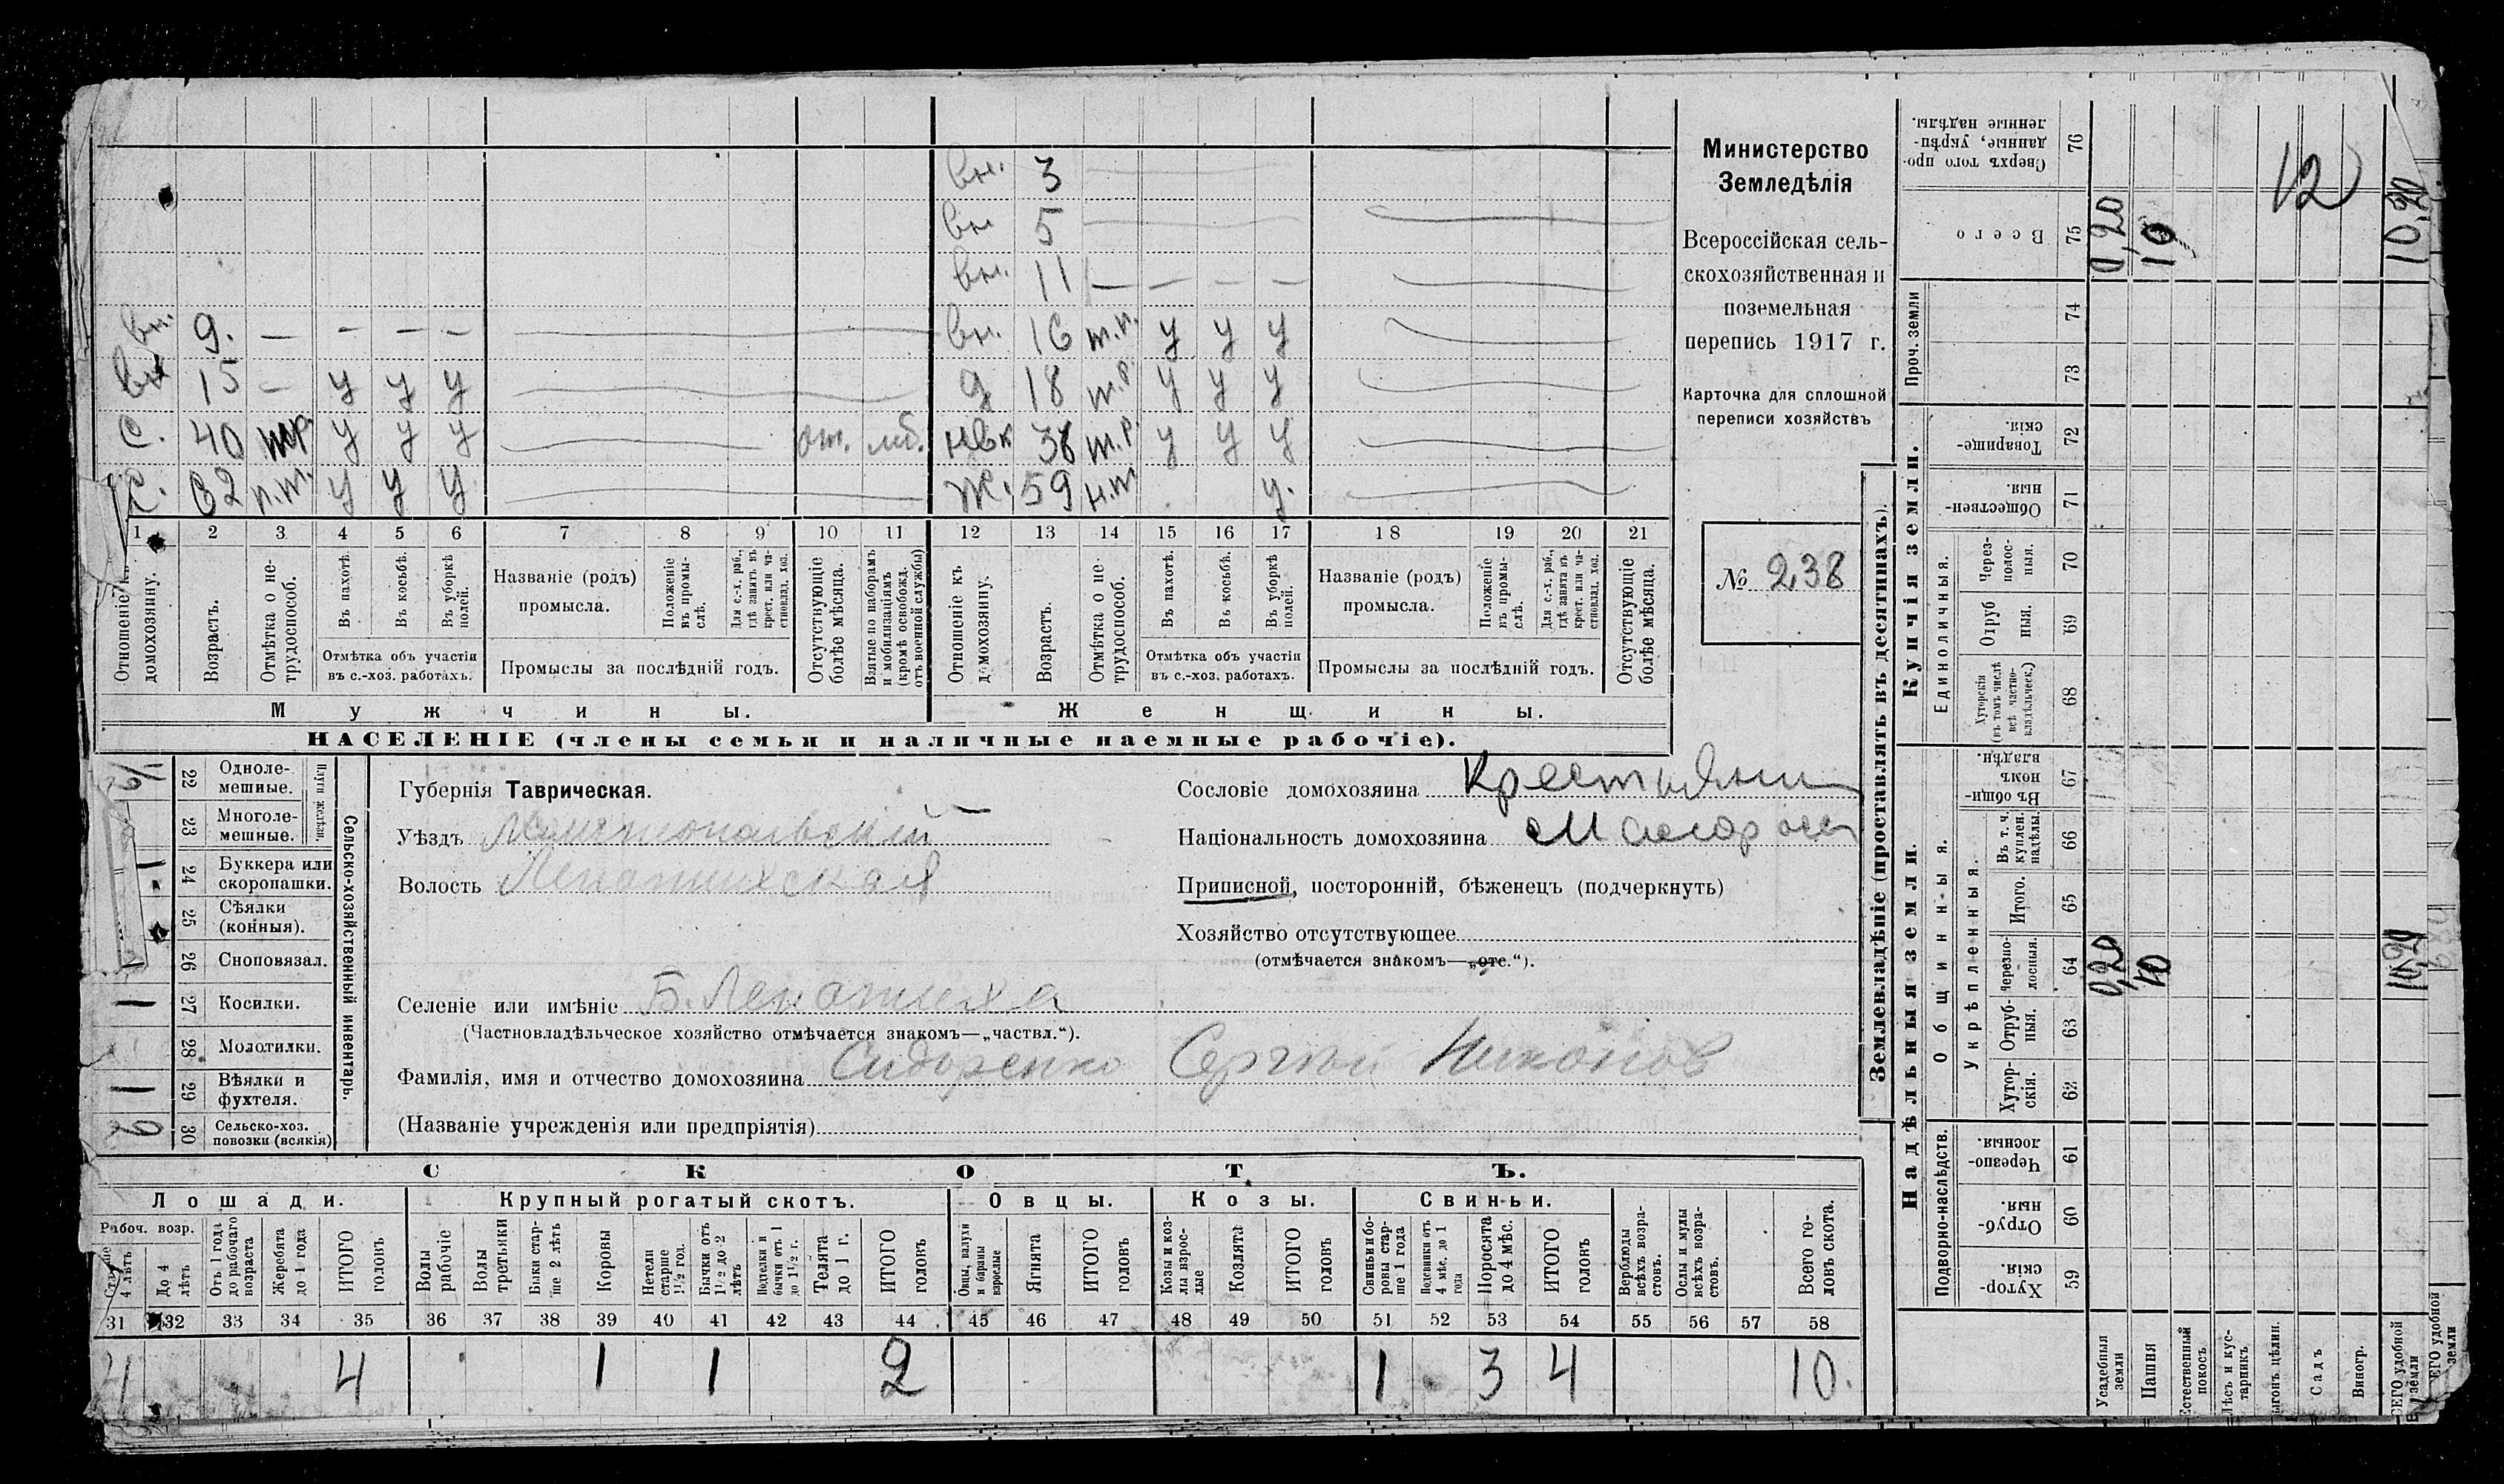 вн. 3
вн 5
вн. 11 — — — —
вн. 9. — — — — вн. 16 т.р. у у у
вн 15 — у у у д 18 т.р. у у у
с. 40 тр. у у у от. мб. нвк 38 т.р. у у у
с. 62 п.т. у у у ж. 59 н.т у.
1 2 3 4 5 6 7 8 9 10 11 12 13 14 15 16 17 18 19 20 21
Отношеніе къ домохозяину.
Возрастъ.
Отмѣтка о нетрудоспособ.
Въ пахотѣ.
Въ косьбѣ.
Въ уборкѣ полей.
Отмѣтка объ участіи
въ с.-хоз. работахъ.
Названіе (родъ)
промысла.
Положеніе въ промыслѣ.
Для с.-х. раб., гдѣ занятъ въ крест. или частновлад. хоз.
Промыслы за послѣдній годъ.
Отсутствующіе болѣе мѣсяца.
Взятые по наборамъ и мобилизаціямъ (кромѣ освобожд. отъ военной службы)
Отношеніе къ домохозяину.
Возрастъ.
Отмѣтка о нетрудоспособ.
Въ пахотѣ.
Въ косьбѣ.
Въ уборкѣ полей.
Отмѣтка объ участіи
въ с.-хоз. работахъ.
Названіе (родъ)
промысла.
Положеніе въ промыслѣ.
Для с.-х. раб., гдѣ занята въ крест. или частновлад. хоз.
Промыслы за послѣдній годъ.
Отсутствующіе болѣе мѣсяца.
Мужчины. Женщины.
НАСЕЛЕНІЕ (члены семьи и наличные наемные рабочіе).
Министерство
Земледѣлія
Всероссійская сель-
скохозяйственная и
поземельная
перепись 1917 г.
Карточка для сплошной
переписи хозяйствъ
№ 238
Сельско-хозяйственный инвентарь.
Плуги желѣзн.
22 Одноле-
мешные.
23 Многоле-
мешные.
1 24 Буккера или
скоропашки.
25 Сѣялки
(конныя).
26 Сноповязал.
1 27 Косилки.
28 Молотилки.
1 29 Вѣялки и
фухтеля.
2 30 Сельско-хоз.
повозки (всякія)
Губернія Таврическая.
Уѣздъ Мелитопольскій
Волость Лепатихская
Селеніе или имѣніе Б. Лепатиха
(Частновладѣльческое хозяйство отмѣчается знакомъ—„частвл.“).
Фамилія, имя и отчество домохозяина Сидоренко Сергѣй Никонов
(Названіе учрежденія или предпріятія)
Сословіе домохозяина Крестьянин
Національность домохозяина Малорос
Приписной, посторонній, бѣженецъ (подчеркнуть)
Хозяйство отсутствующее
(отмѣчается знакомъ—„отс.“).
СКОТЪ.
Лошади. Крупный рогатый скотъ. Овцы. Козы. Свиньи.
Рабоч. возр.
Старше 4 лѣтъ
До 4 лѣтъ
Отъ 1 года до рабочаго возраста
Жеребята до 1 года
ИТОГО головъ
Волы рабочіе
Волы третьяки
Быки старше 2 лѣтъ
Коровы
Нетели старше 1 1/2 год.
Бычки отъ 1 1/2 до 2 лѣтъ
Подтелки и бычки отъ 1 до 1 1/2 г.
Телята до 1 г.
ИТОГО головъ
Овцы, валухи и бараны взрослые
Ягнята
ИТОГО головъ
Козы и козлы взрослые
Козлята
ИТОГО головъ
Свиньи и боровы старше 1 года
Подсвинки отъ 4 мѣс. до 1 года
Поросята до 4 мѣс.
ИТОГО головъ
Верблюды всѣхъ возрастовъ.
Ослы и мулы всѣхъ возрастовъ.
Всего головъ скота.
31 32 33 34 35 36 37 38 39 40 41 42 43 44 45 46 47 48 49 50 51 52 53 54 55 56 57 58
4 4 1 1 2 1 3 4 10.
Землевладѣніе (проставлять въ десятинахъ).
Надѣльныя земли. Купчія земли. Проч. земли
Подворно-наслѣдств.
Общинныя.
Укрѣпленныя.
Единоличныя.
Хуторскія. 59
Отрубныя 60
Черезполосныя. 61
Хуторскія. 62
Отрубныя. 63
Черезполосныя. 64 0,20 10 10,20
Итого. 65
Въ т. ч. куплен. надѣлы. 66
Въ общинномъ владѣн. 67
Хуторскія (въ томъ числѣ всѣ частновладѣльческ.) 68
Отрубныя. 69
Черезполосныя. 70
Общественныя. 71
Товарищескія. 72
73
74
Всего 75 0,20 10 10,20
Сверхъ того проданные, укрѣпленные надѣлы. 76
12
Усадебныя земли
Пашня
Естественный покосъ
Лѣсъ и кустарникъ
Выгонъ, цѣлин.
Садъ
Виногр.
ВСЕГО удобной земли
ВСЕГО удобной земли